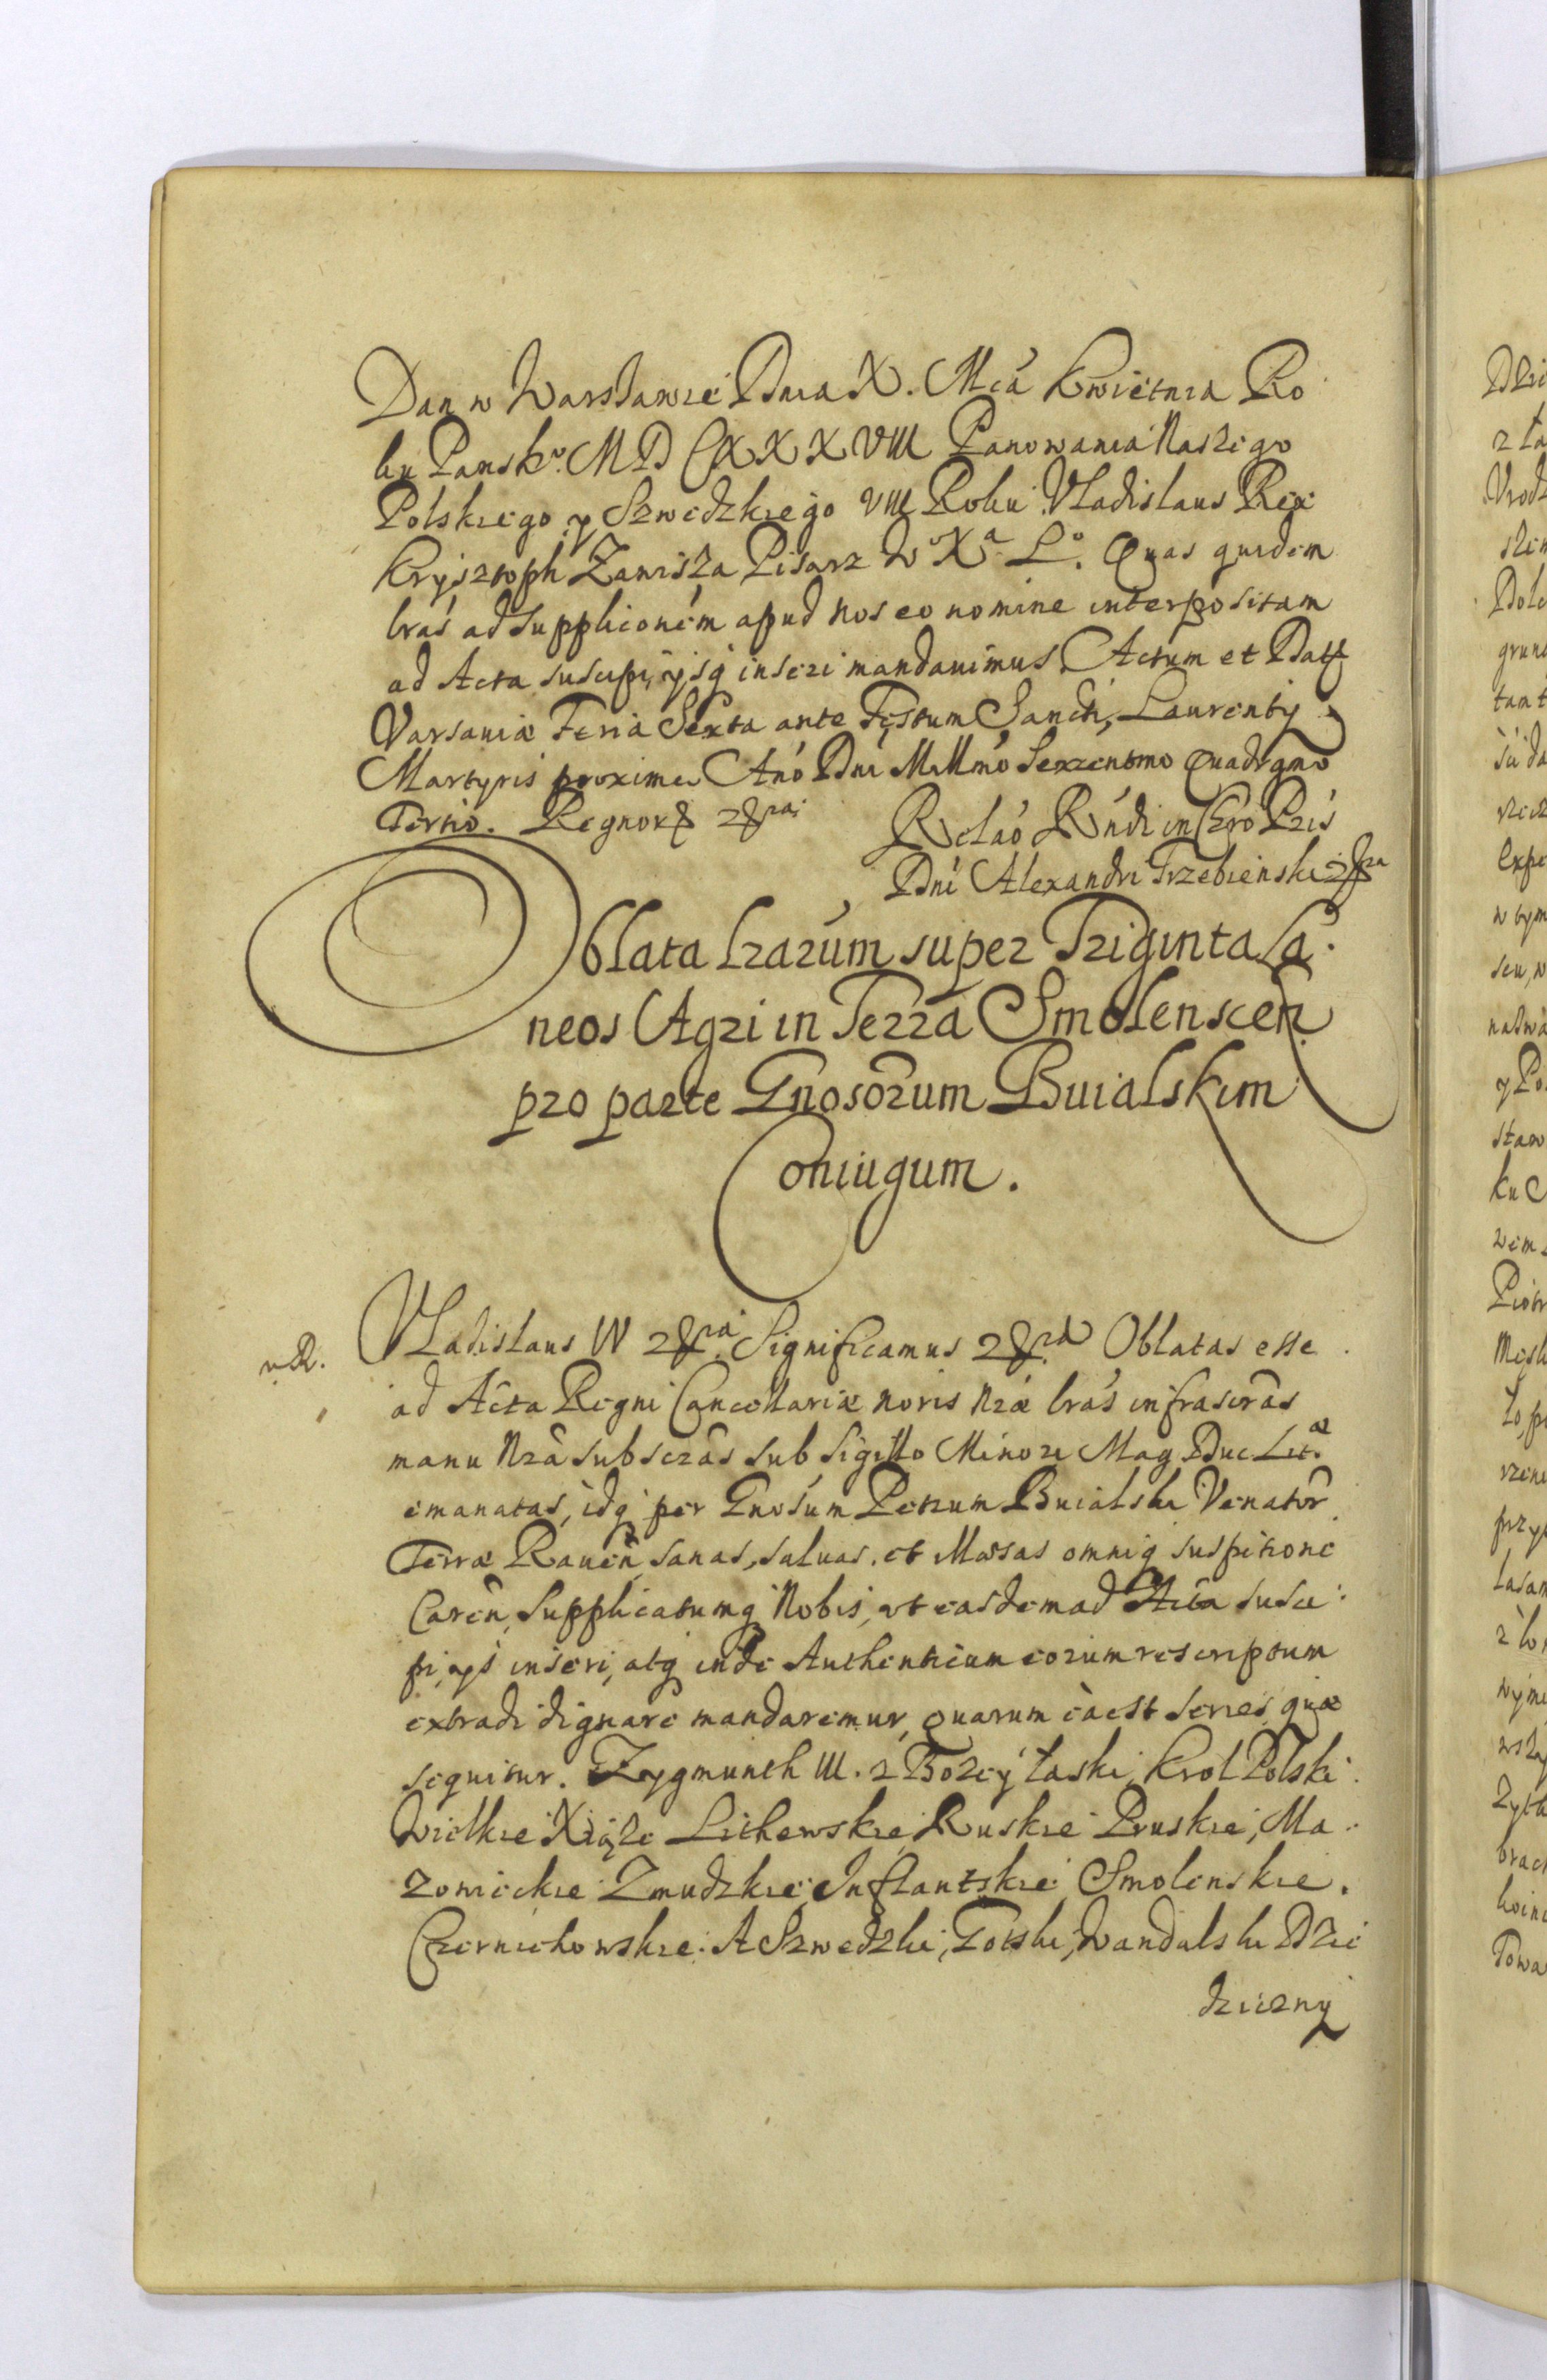 Dan w Warszawie Dnia X. Mca Kwietnia Ro
ku Pansko. MDCXXXVIII Panowania Naszego
Polskiego y Szwedzkiego VIII Roku Vladislaus Rex
Krysztoph Zawisza Pisarz W Xa Lo. Quas quidem
lras ad suppliconém apud nos eo nomine interpositam
ad Acta suscipi, ijsq inseri mandauimus. Actum et Datt
Varsauiæ Feria Sexta ante Festum Sancti Laurentij
Martyris proxima Ano Dni Millmo Sexcentmo Quadrgmo
Tertio. Regnor
Relao Rndi in Chro Pris
Dni Alexandri Trzebienski
Oblata Lrarum super Triginta La
neos Agri in Terra Smolenscen
pro parte Gnosorum Buialskim
Coniugum.
Vladislaus IV Significamus Oblatas esse
ad Acta Regni Cancellariæ noris nræ lras infrascras
manu Nra subscras sub Sigillo Minori Mag Duc Litæ
emanatas, idq per Gnosum Petrum Buialski Venator
Terræ Rauen, sanas, saluas, et illæsas omniq suspitione
Caren, Supplicatumq Nobis, vt easdem ad Acta susci
pi, ijs inseri, atq inde Authenticum eorum rescriptum
extradi dignare mandaremur, quarum ea est series quæ
sequitur. Zygmunth III. z Bozey łaski Krol Polski
Wielkie Xiąże Lithewskie Ruskie Pruskie, Ma
zowieckie Zmudzkie Inflantskie Smolenskie.
Czerniechowskie. A Szwedzki, Gotski, Wandalski Dzie
dziczny